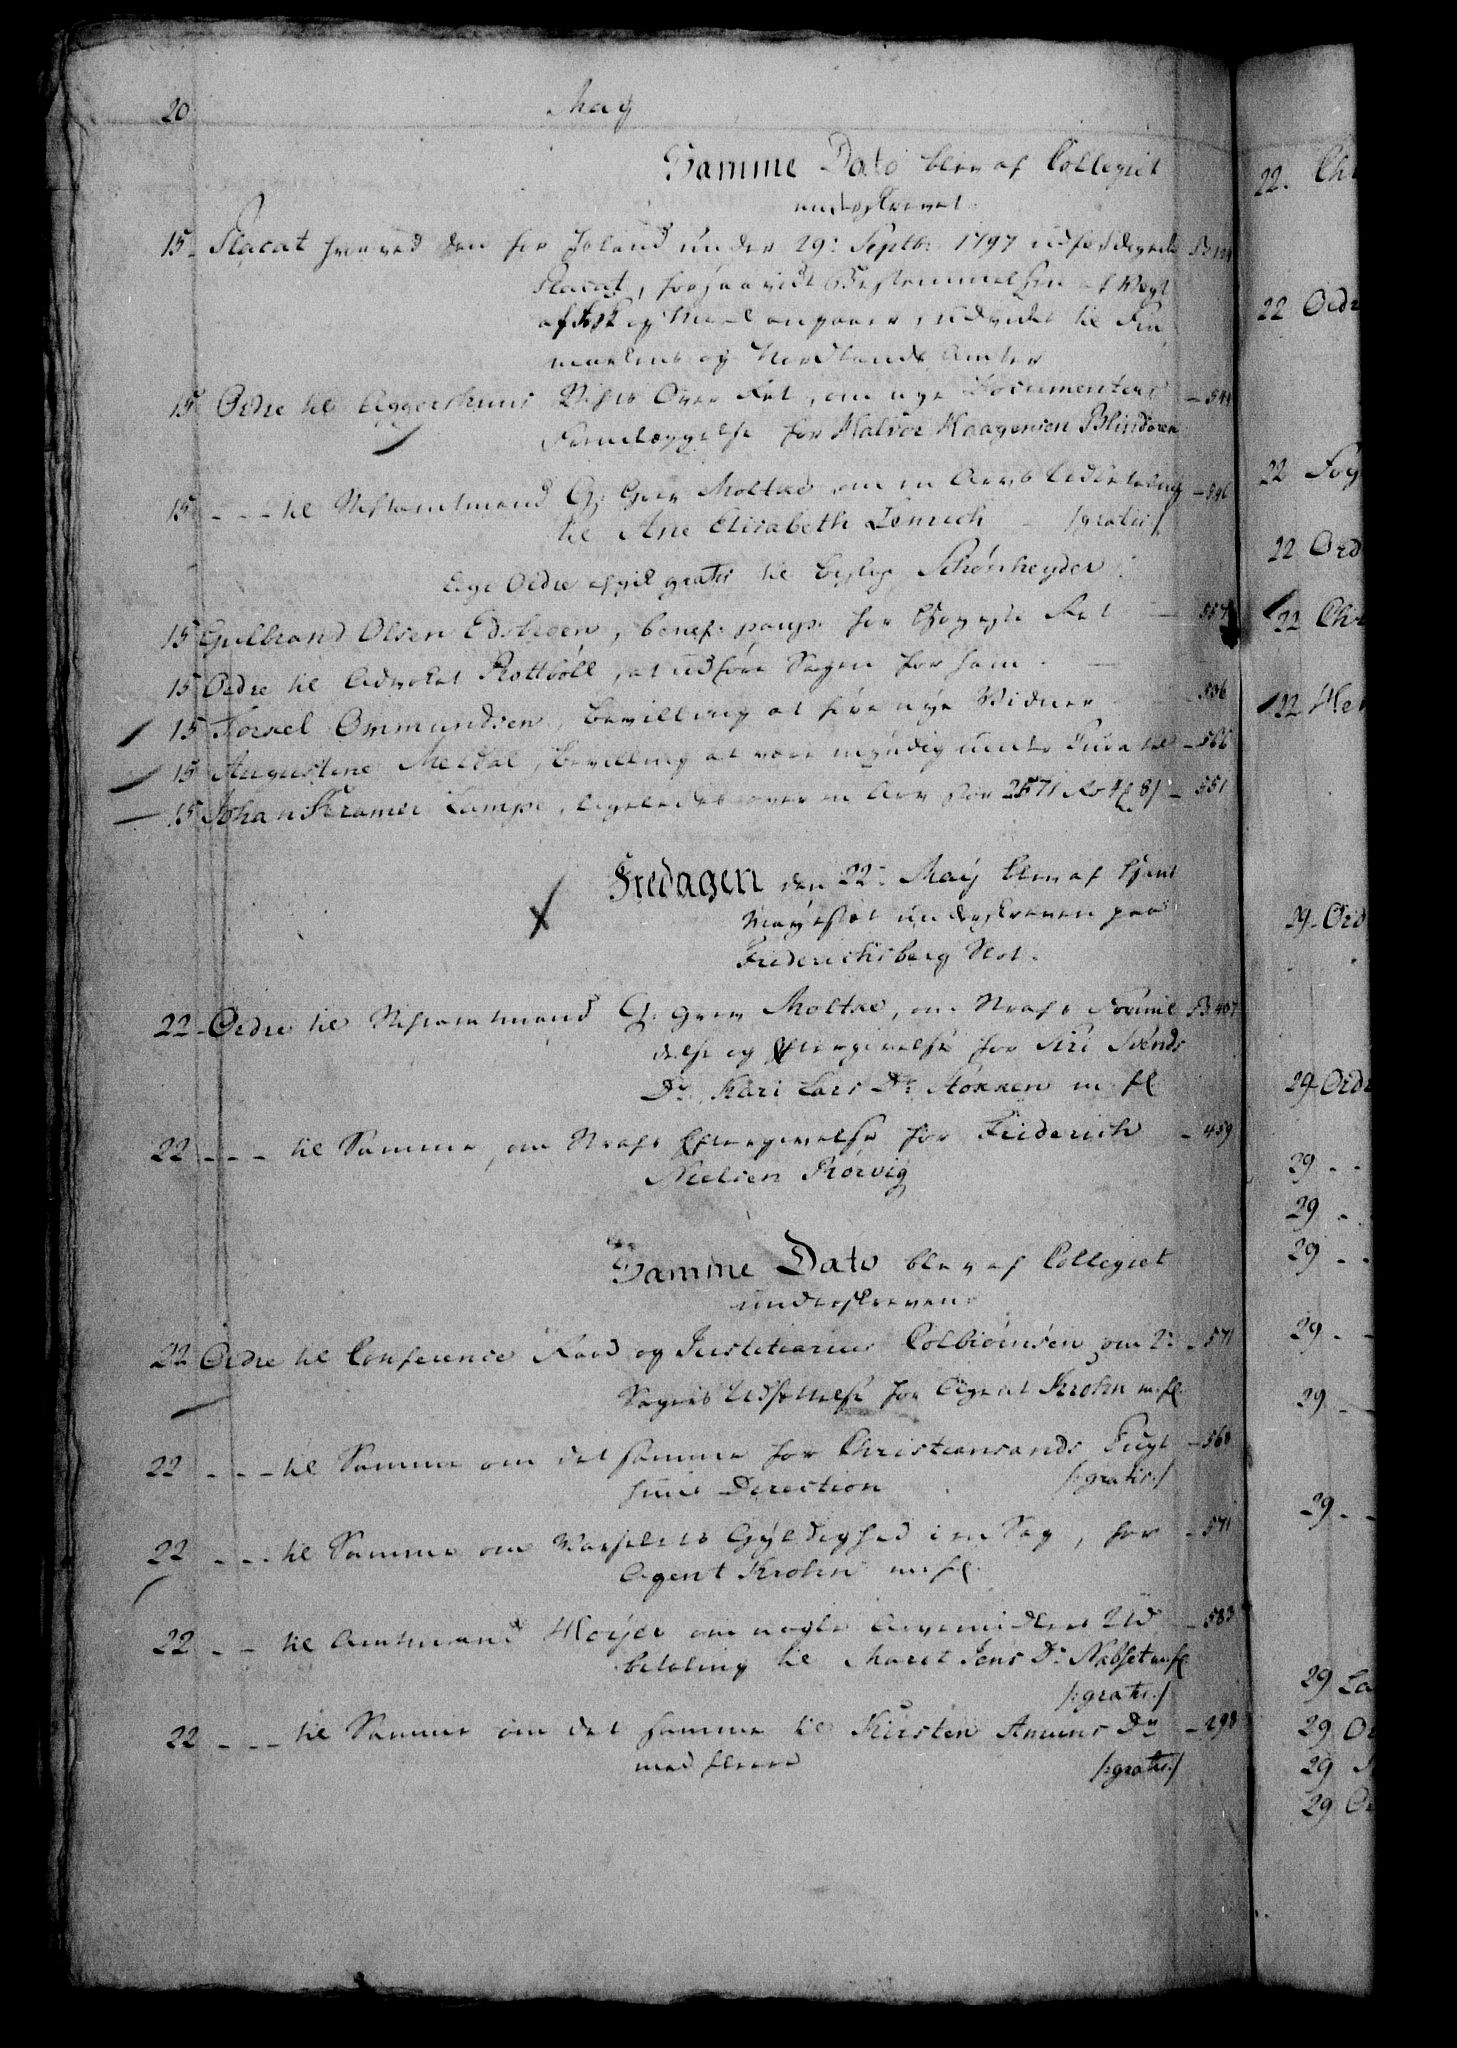 20
May
Samme Dato blev af Collegiet
underskrevet.
15 - Placat hvorved den for Island under 29: Septb: 1797 udfærdigede
Placat, forsaavidt Bestemmelsen af Vægt
af Fisk og angaaer, udvides til Fin
markens og Nordlands Amter
15 Ordre til Aggershuus Stifts Over Ret, om nye Documenters - 544
Fremlæggelse for Halvor Haagensen Blindoren
15 - - - til Stiftamtmand G: Grev Moltke om en Arvs Udbetaling - 546
til Ane Elisabeth Lenrich - /:gratis:/
Lige Ordre afgik gratis til Biskop Schønheyder
15 Gulbrand Olsen Edsbroen, benef: paup: for Høyeste Ret - 557
15 Ordre til Advokat Rottbøll, at udføre Sagen for ham. -
15 Torkel Ommundsen, Bevilling at føre nye Vidner - 506
15 Augustine Meldal, Bevilling at være myndig under Curatel - 566
15 Johan Kramer Lampe, ligeledes over en Arv stor 2571 Rd 4 ß 8/ - 551
Fredagen den 22: May blev af Hans
Mayestæt underskreven paa
Friderichsberg Slot.
22 - Ordre til Stiftamtmand G: Grev Moltke, om Straffs Formil B 407
delse og Eftergivelse for Siri Svends
Dr. Kari Lars Dr. Stokken m: fl
22 - - - til Samme, om Straffs Eftergivelse for Friderich - 459
Nielsen Rørvig
Samme Dato blev af Collegiet
underskreven.
22 Ordre til Conference Raad og Justitiarius Colbiørnsen, om 2: - 571
Sagers Udsættelse for Agent Krohn m: fl.
22 - - - til Samme om det samme for Christiansands Tugt - 568
huus Direction /:gratis:/
22 - - - til Samme om Varselets Gyldighed i en Sag, for - 571
Agent Krohn m: fl.
22 - - til Amtmand Høyer om nogle Arvemidlers Ud - 583
betaling til Maret Jens Dr. Nabset m: fl
/:gratis:/
22 - - - til Samme om det samme til Kirsten Amuns Dr - 298
med flere /:gratis:/
22. Ch
22 Ord
22 Fog
22 Ord
22 Chr
22 He
29 - Ord
29 - Ord
29 - -
29 -
29 - -
29 - -
29 -
29 - -
29 La
29 O
29
29 O